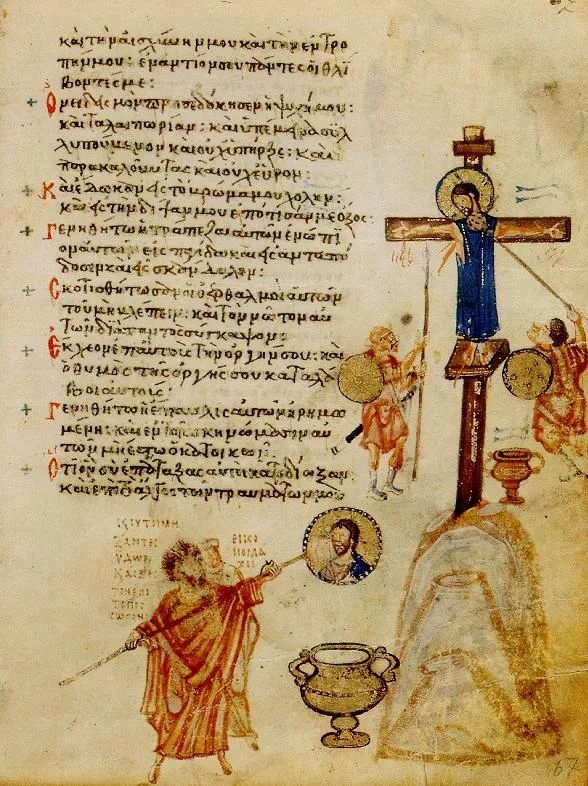 καὶ τὴν αἰσχύνην μου καὶ τὴν ἐντρο
πήν μου: ἐναντίον σου πάντες οἱ θλί
βοντές με:
Ὀνειδισμὸν προσεδόκησεν ἡ ψυχή μου:
καὶ ταλαιπωρίαν: καὶ ὑπέμεινα συλ
λυπούμενον καὶ οὐχ ὑπῆρξε: καὶ
παρακαλοῦντας καὶ οὐχ εὗρον:
Καὶ ἔδωκαν εἰς τὸ βρῶμα μου χολήν:
καὶ εἰς τὴν δίψαν μου ἐπότισάν με ὄξος:
Γενηθήτω ἡ τράπεζα αὐτῶν ἐνώπι
ον αὐτῶν εἰς παγίδα καὶ εἰς ἀνταπό
δοσιν καὶ εἰς σκάνδαλον:
Σκοτισθήτωσαν οἱ ὀφθαλμοὶ αὐτῶν
τοῦ μὴ βλέπειν: καὶ τὸν νῶτον αὐ
τῶν διὰ παντὸς σύγκαμψον:
Ἔκχεον ἐπ' αὐτοὺς τὴν ὀργήν σου: καὶ
ὁ θυμὸς τῆς ὀργῆς σου καταλά
βοι αὐτούς:
Γενηθήτω ἡ ἔπαυλις αὐτῶν ἠρημω
μένη: καὶ ἐν τοῖς σκηνώμασιν αὐ
τῶν μὴ ἔστω ὁ κατοικῶν:
Ὅτι ὃν σὺ ἐπάταξας αὐτοὶ κατεδίωξαν
καὶ ἐπὶ τὸ ἄλγος τῶν τραυμάτων μου
ΞΑΝΤΕΣ
ΥΔΩΡ
ΕΙΚΟ
ΝΟΜΑ
ΧΟΙ
67